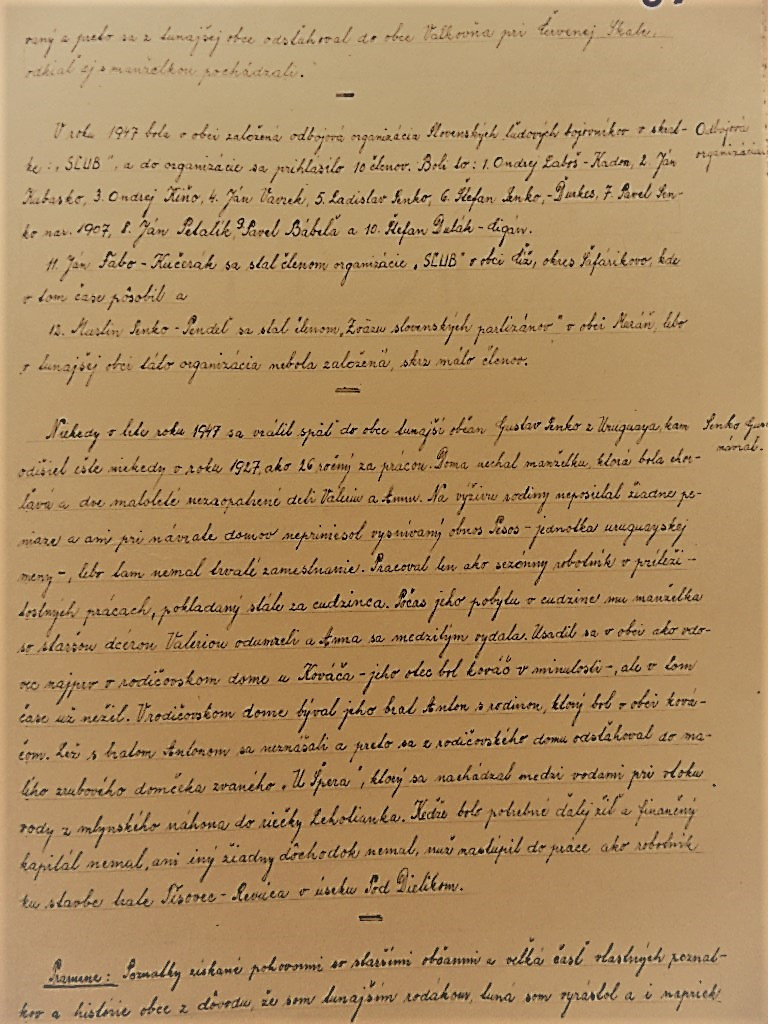 vaný a preto sa z tunajšej obce odsťahoval do obce Valkovňa pri Červenej Skale,
odkiaľ aj s manželkou pochádzali.
V roku 1947 bola v obci založená odbojová organizácia Slovenských ľudových bojovníkov v skrat-
Odbojová
ke: „SĽUB", a do organizácie sa prihlásilo 10 členov. Boli to: 1. Ondrej Laboš-Kadon, 2. Ján
organizácia
Kubasko, 3. Ondrej Kiňo, 4. Ján Vavrek, 5. Ladislav Senko, 6. Štefan Senko,-Ďurkes, 7. Pavel Sen-
ko nar. 1907, 8. Ján Petalík, 9 Pavel Bábeľa a 10. Štefan Dulák-Cigán.
11. Ján Fabo-Kučerák sa stal členom organizácie „SĽUB" v obci Číž, okres Šafárikovo, kde
v tom čase pôsobil a
12. Martin Senko-Pendeľ sa stal členom „Zväzu slovenských partizánov" v obci Muráň, lebo
v tunajšej obci táto organizácia nebola založená, skrz málo členov.
Niekedy v lete roku 1947 sa vrátil späť do obce tunajší občan Gustav Senko z Uruguaya, kam
Senko Gus
odišiel ešte niekedy v roku 1927, ako 26 ročný za prácou. Doma nechal manželku, ktorá bola chor-
návrat.
ľavá a dve maloleté nezaopatrené deti Valériu a Annu. Na výživu rodiny neposielal žiadne pe-
niaze a ani pri návrate domov nepriniesol vysnívaný obnos Pesos-jednotka uruguayskej
meny-, lebo tam nemal trvalé zamestnanie. Pracoval len ako sezónny robotník v príleži-
tostných prácach, pokladaný stále za cudzinca. Počas jeho pobytu v cudzine mu manželka
so staršou dcérou Valériou odumreli a Anna sa medzitým vydala. Usadil sa v obci ako vdo-
vec najprv v rodičovskom dome u Kováča-jeho otec bol kováč v minulosti-, ale v tom
čase už nežil. V rodičovskom dome býval jeho brat Anton s rodinou, ktorý bol v obci ková-
čom. Lež s bratom Antonom sa neznášali a preto sa z rodičovského domu odsťahoval do ma-
lého zrubového domčeka zvaného „U Špera", ktorý sa nachádzal medzi vodami pri vtoku
vody z mlynského náhona do riečky Leholianka. Keďže bolo potrebné ďalej žiť a finančný
kapitál nemal, ani iný žiadny dôchodok nemal, nuž nastúpil do práce ako robotník
ku stavbe trate Tisovec-Revúca v úseku Pod Dielikom.
Pramene: Poznatky získané pohovormi so staršími občanmi a veľká časť vlastných poznat-
kov a histórie obce z dôvodu, že som tunajším rodákom, tuná som vyrástol a i napriek